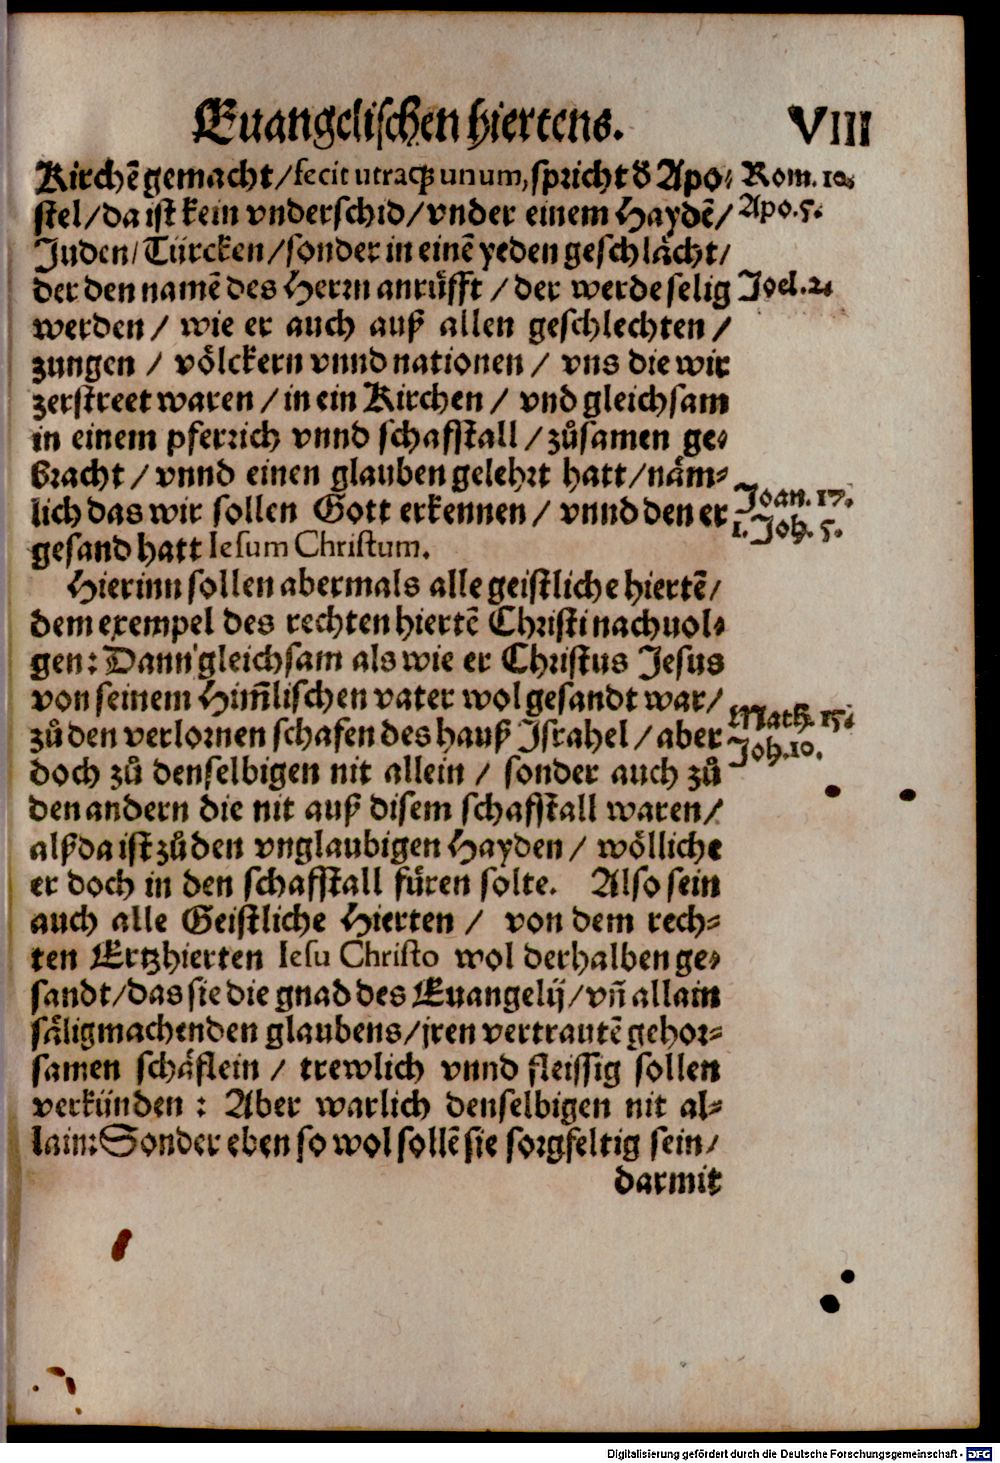 Euangelischen hiertens. VIII
Kirchē gemacht / fecit utraqꝫ unum, spricht đ Apo⸗ Rom. 10.
stel / da ist kein vnderschid / vnder einem Haydē / Apo. 5.
Juden / Türcken / sonder in einē yeden geschlächt /
der den namē des Herrn anrüfft / der werde selig Joel. 2.
werden / wie er auch auß allen geschlechten /
zungen / völckern vnnd nationen / vns die wir
zerstreet waren / in ein Kirchen / vnd gleichsam
in einem pferrich vnnd schafstall / zůsamen ge⸗
bracht / vnnd einen glauben gelehrt hatt / näm⸗
Joan. 17.
lich das wir sollen Gott erkennen / vnnd den er 1. Joh. 5.
gesand hatt Iesum Christum.
Hierinn sollen abermals alle geistliche hiertē /
dem exempel des rechten hiertē Christi nachuol⸗
gen: Dann gleichsam als wie er Christus Jesus
von seinem Him̄lischen vater wol gesandt war / Math. 15.
zů den verlornen schafen des hauß Israhel / aber Joh. 10.
doch zů denselbigen nit allein / sonder auch zů
den andern die nit auß disem schafstall waren /
alß da ist zů den vnglaubigen Hayden / wölliche
er doch in den schafstall füren solte. Also sein
auch alle Geistliche Hierten / von dem rech⸗
ten Ertzhierten Iesu Christo wol derhalben ge⸗
sandt / das sie die gnad des Euangelij / vn̄ allain
säligmachenden glaubens / jren vertrautē gehor⸗
samen schäflein / trewlich vnnd fleissig sollen
verkünden : Aber warlich denselbigen nit al⸗
lain: Sonder eben so wol sollē sie sorgfeltig sein /
darmit
Digitalisierung gefördert durch die Deutsche Forschungsgemeinschaft - DFG